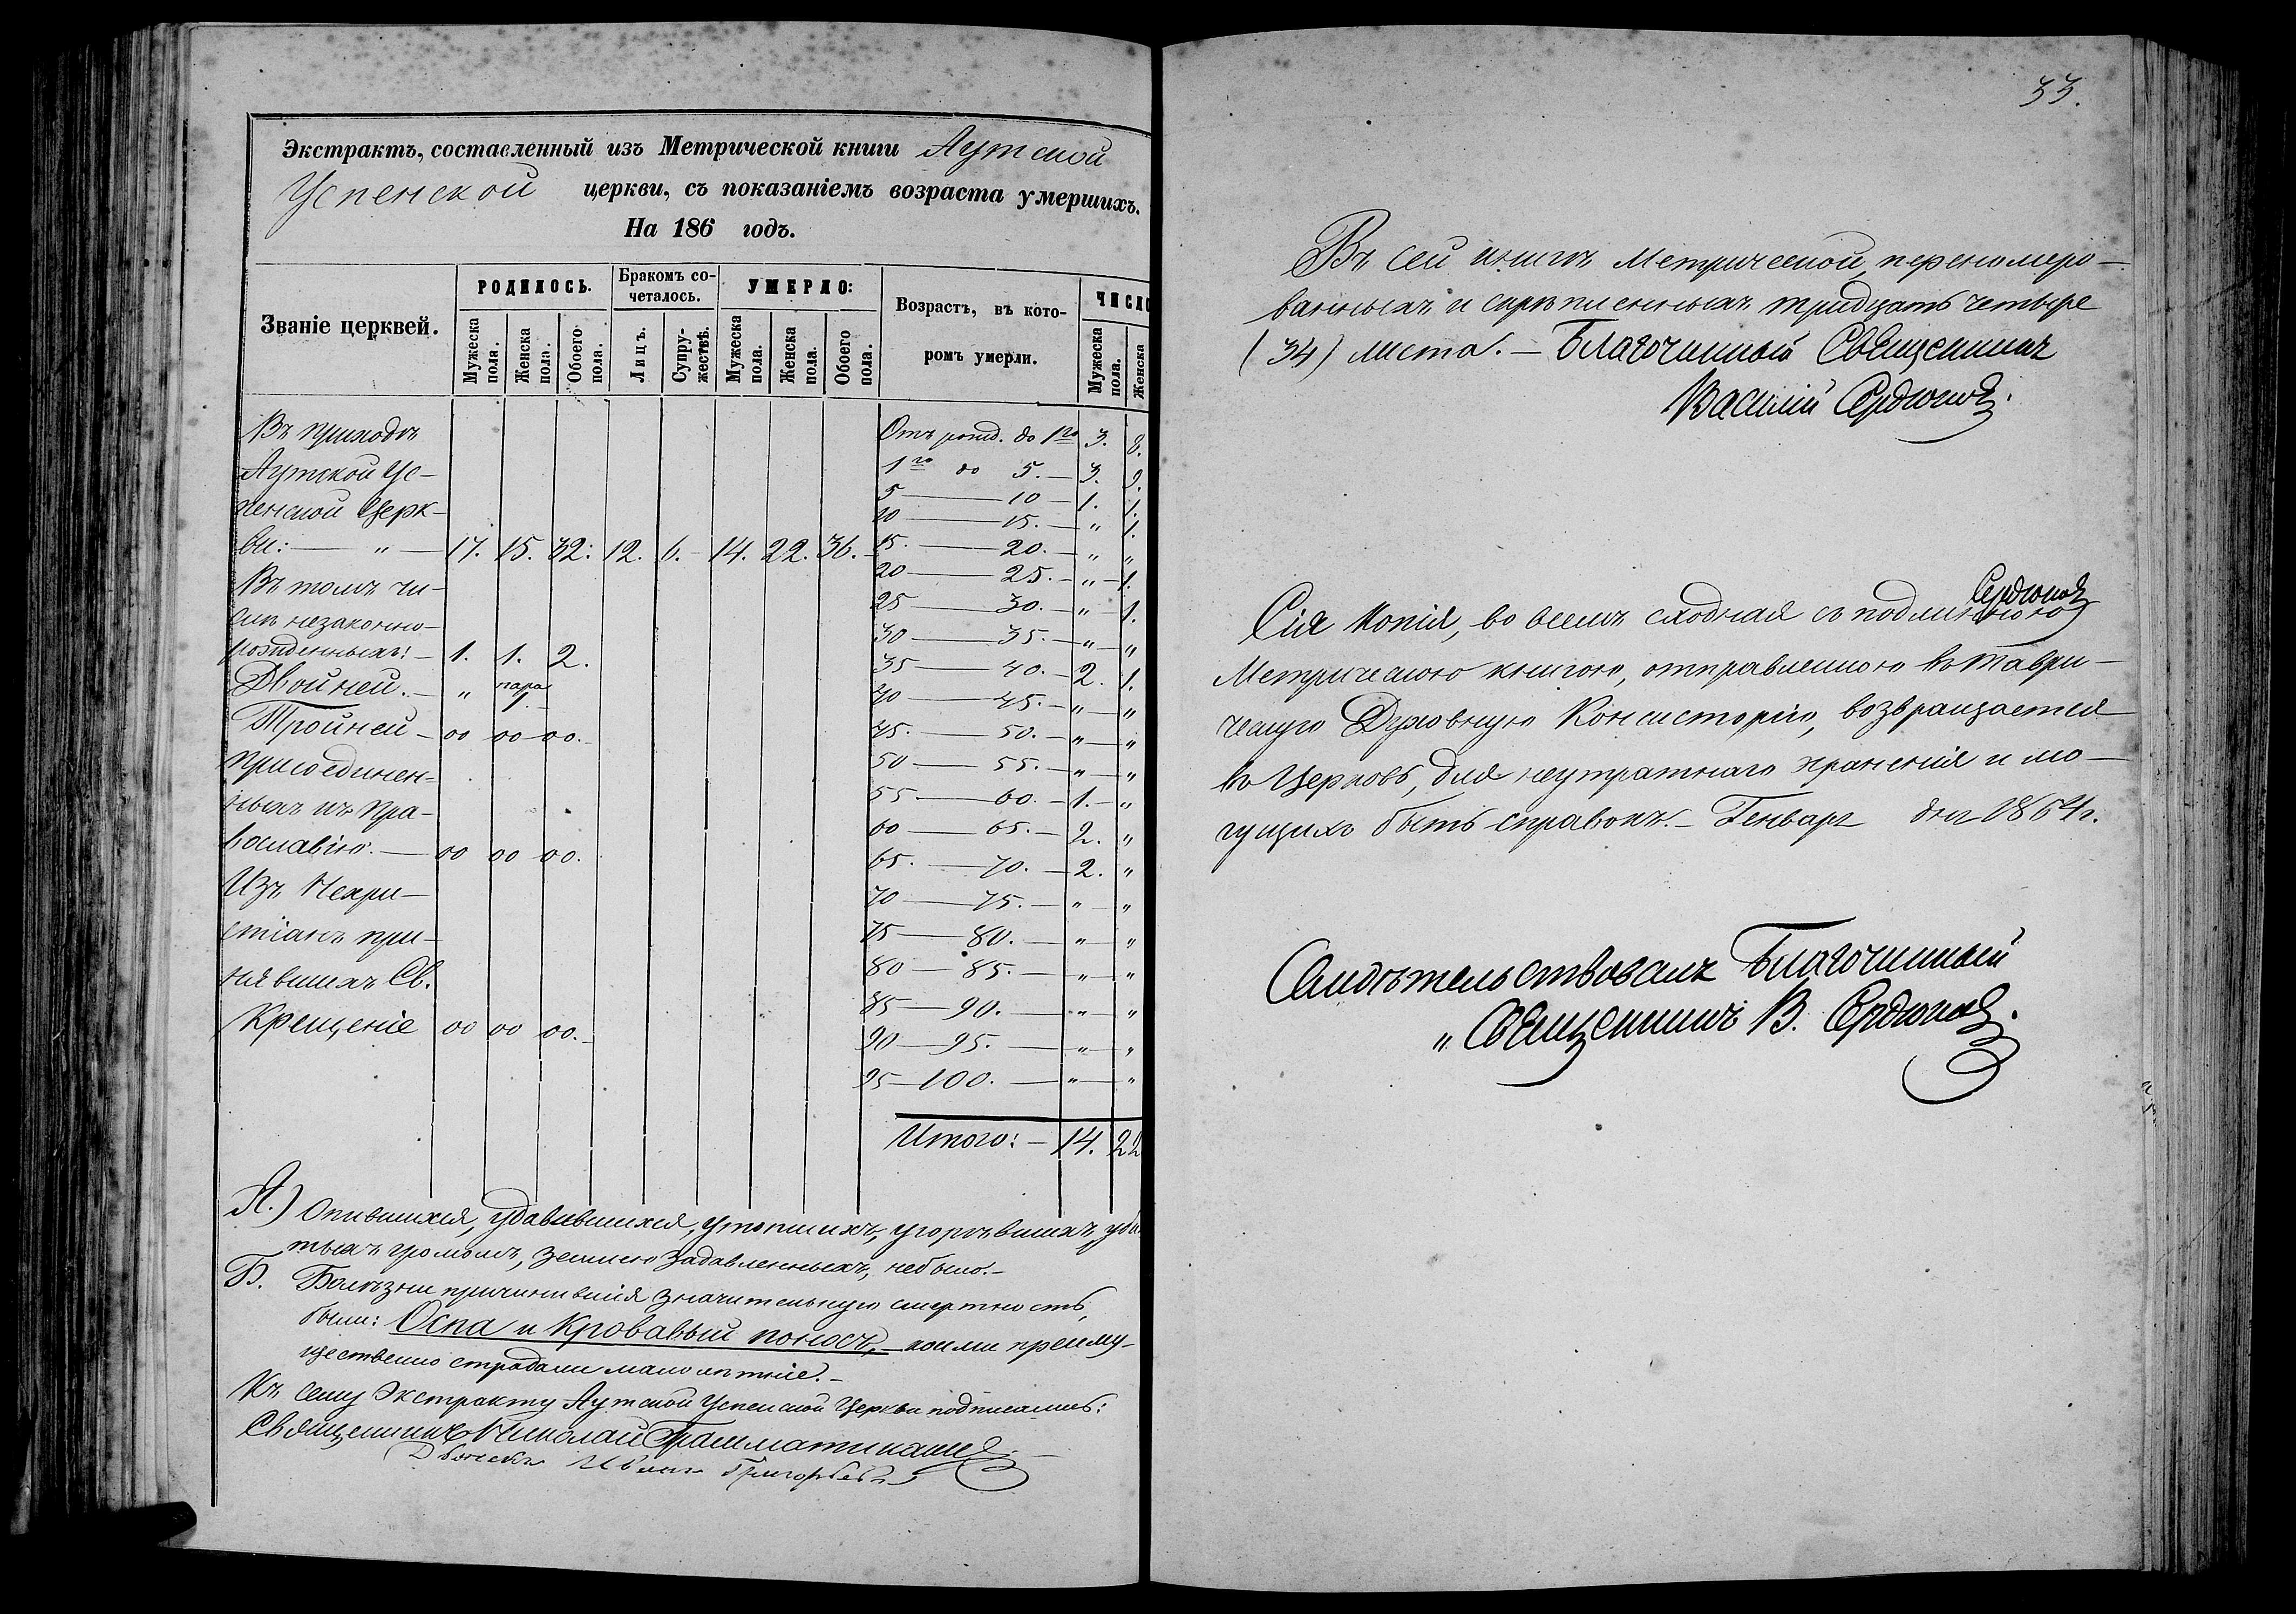 Экстрактъ, составленный изъ Метрической книги Аутской
Успенской церкви, съ показаніемъ возраста умершихъ.
На 186 годъ.
Званіе церквей.
РОДИЛОСЬ.
Мужеска пола.
Женска пола.
Обоего пола.
Бракомъ со-
четалось.
Лицъ.
Супру-
жествъ.
УМЕРЛО:
Мужеска пола.
Женска пола.
Обоего пола.
Возрастъ, въ кото-
ромъ умерли.
ЧИСЛО
Мужеска пола.
Женска
Въ приходѣ
Аутской Ус-
пенской Церк-
ви: — " — 17. 15. 32: 12. 6. 14. 22. 36.
Въ томъ чи-
слѣ незаконно-
рожденныхъ: — 1. 1. 2.
Двойней. — " пара 1.
Тройней — 00 00 00.
Присоединен-
ныхъ къ Пра-
вославію. — 00 00 00.
Изъ Нехри-
стіанъ при-
нявшихъ Св.
Крещеніе 00 00 00.
Отъ рожд. до 1го 3. 8.
1го до 5. — 3. 9.
5 — 10 — 1. 1.
10 — 15. — " 1.
15. — 20. — " "
20 — 25. — " 1.
25 — 30. — " 1.
30 — 35. — " "
35 — 40. — 2. 1.
40 — 45. — " "
45. — 50. — " "
50 — 55. — " "
55 — 60. — 1. "
60 — 65. — 2. "
65. — 70. — 2. "
70 — 75. — " "
75 — 80. — " "
80 — 85. — " "
85 — 90. — " "
90 — 95. — " "
95 — 100. — " "
Итого: — 14. 22
А.) Опившихся, удавившихся, утопшихъ, угорѣвшихъ, уби-
тыхъ громомъ, землею задавленныхъ, небыло. —
Б. Болѣзни причинившія значительную смертность,
были: Оспа и Кровавый поносъ, — коими преиму-
щественно страдали малолѣтніе. —
Къ сему Экстракту Аутской Успенской Церкви подписались:
Священникъ Николай Грамматикаки
Дьячекъ Иванъ Григорьевъ
33.
Въ сей книгѣ Метрической, переномеро-
ванныхъ и скрѣпленныхъ тридцать четыре
(34) листа. — Благочинный Священникъ
Василій Сердюковъ.
Сердюковъ
Сія Копія, во всемъ сходная съ подлинною
Метрическою книгою, отправленною въ Таври-
ческую Духовную Консисторію, возвращается
въ Церковь, для неутратнаго храненія и мо-
гущихъ быть справокъ. — Генваря дня 1864 г.
Свидѣтельствовалъ Благочинный
„ Священникъ В. Сердюковъ.